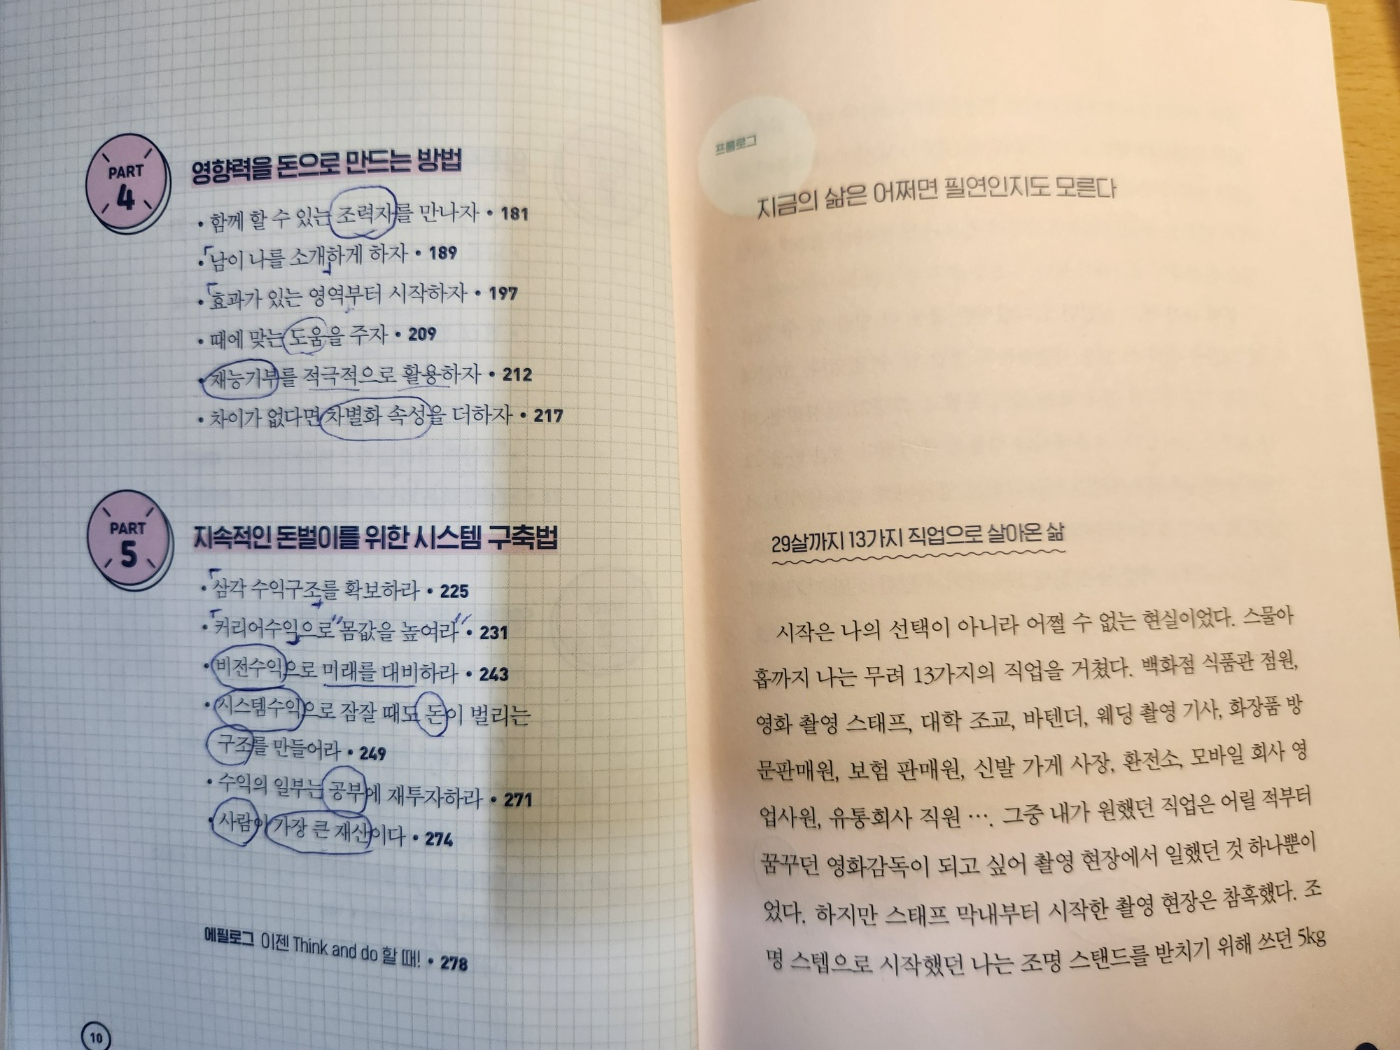 PART
4
영향력을 돈으로 만드는 방법
• 함께 할 수 있는 조력자를 만나자 • 181
• 남이 나를 소개하게 하자 • 189
• 효과가 있는 영역부터 시작하자 • 197
• 때에 맞는 도움을 주자 • 209
• 재능기부를 적극적으로 활용하자 • 212
• 차이가 없다면 차별화 속성을 더하자 • 217
PART
5
지속적인 돈벌이를 위한 시스템 구축법
• 삼각 수익구조를 확보하라 • 225
• 커리어수익으로 몸값을 높여라 • 231
• 비전수익으로 미래를 대비하라 • 243
• 시스템수익으로 잠잘 때도 돈이 벌리는
구조를 만들어라 • 249
• 수익의 일부는 공부에 재투자하라 • 271
• 사람이 가장 큰 재산이다 • 274
에필로그 이젠 Think and do 할 때! • 278
10
프롤로그
지금의 삶은 어쩌면 필연인지도 모른다
29살까지 13가지 직업으로 살아온 삶
시작은 나의 선택이 아니라 어쩔 수 없는 현실이었다. 스물아
홉까지 나는 무려 13가지의 직업을 거쳤다. 백화점 식품관 점원,
영화 촬영 스태프, 대학 조교, 바텐더, 웨딩 촬영 기사, 화장품 방
문판매원, 보험 판매원, 신발 가게 사장, 환전소, 모바일 회사 영
업사원, 유통회사 직원 …. 그중 내가 원했던 직업은 어릴 적부터
꿈꾸던 영화감독이 되고 싶어 촬영 현장에서 일했던 것 하나뿐이
었다. 하지만 스태프 막내부터 시작한 촬영 현장은 참혹했다. 조
명 스텝으로 시작했던 나는 조명 스탠드를 받치기 위해 쓰던 5kg